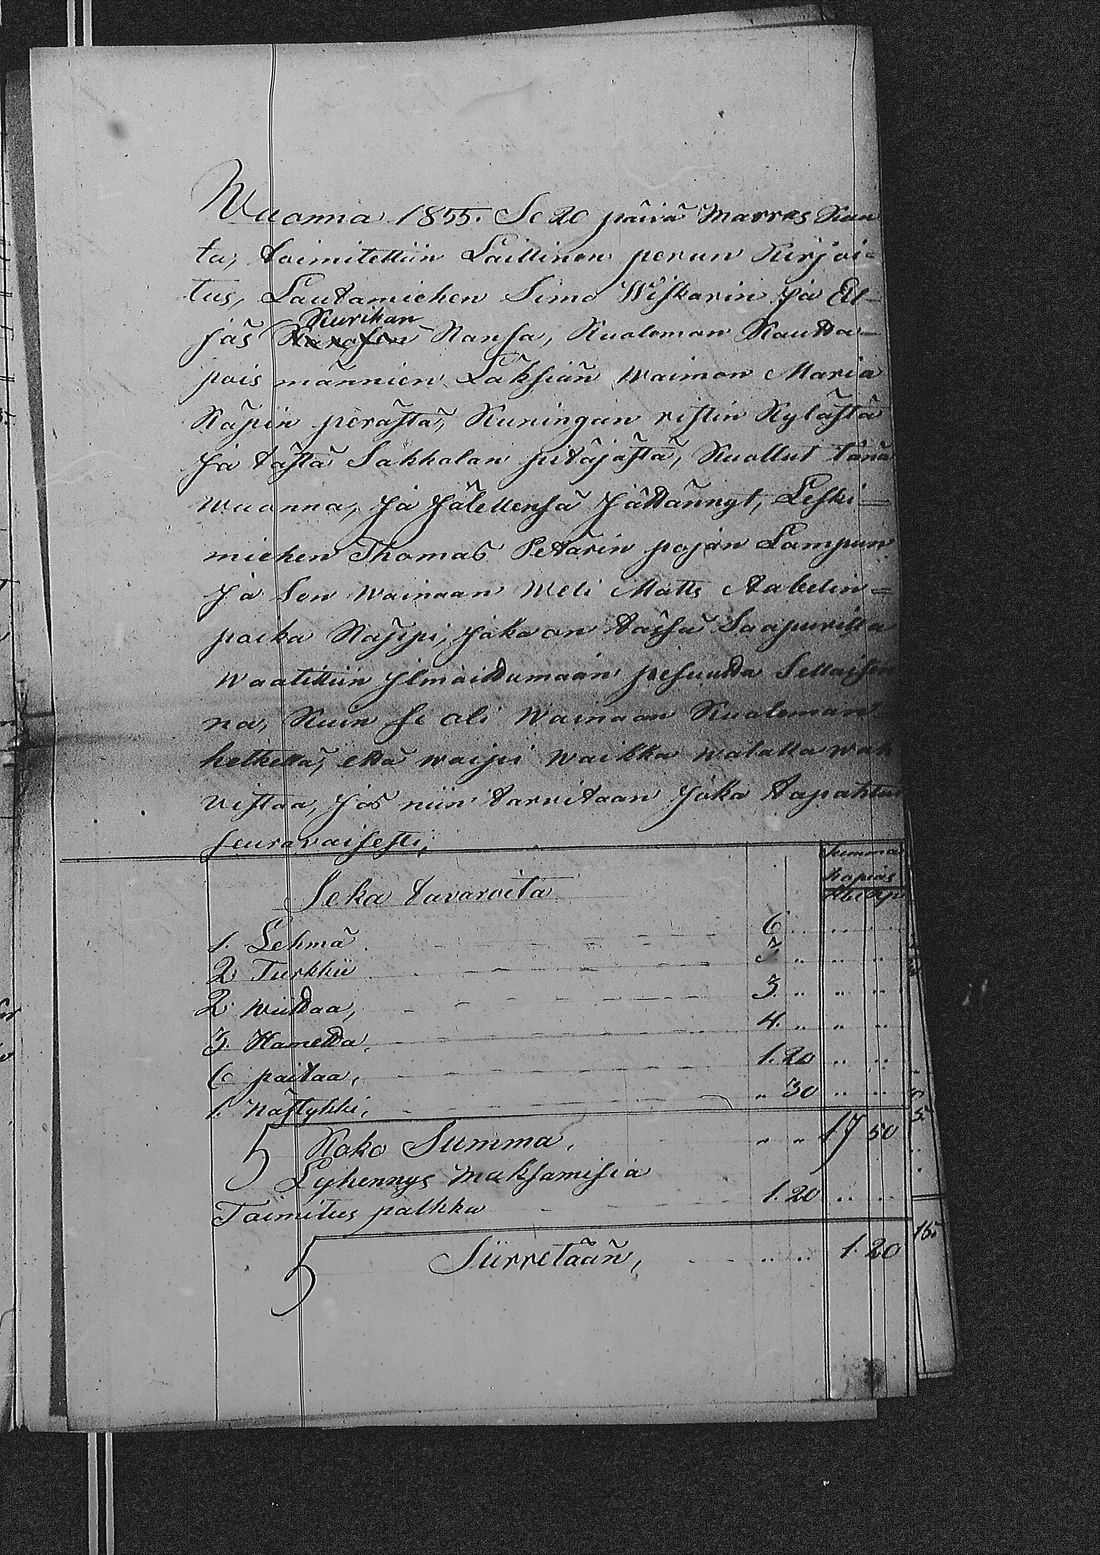 Wuonna 1855. Se 20 päivä Marras Kuu
ta, toimitettiin Laillinen perun Kirjoi=
tus, Lautamiehen Simo Wiskarin ja El-
Kurikan
jas Kansa, Kualeman Kautta=
pois männien Läksiän Waimon Maria
Näpin perästä, Kuningan ristin Kylästä
ja tästä Sakkolan pitäjästä, Kuollut tänä
wuonna, ja jälellensä jättännyt, Leski=
miehen Thomas Petärin pojan Lampun
ja sen Wainaan Weli Matts Aabelin=
poika Näppi, joka on tässä Saapuvilla
Waatittiin ylmoittamaan pesuutta Sellaisen
na, Kuin se oli Wainaan Kualeman
hetkellä, että woipi Waikka walalla wah
vistaa, jos niin tarvitaan joka tapahtui
seuravaisesti;
Summa
Kopeas
Seka tavaroita
1. Lehmä 6 .. .. ..
2. Turkkii 3 .. .. ..
2. wiittaa, 3. .. .. ..
3. Hametta, 4. .. .. ..
6 paitaa, 1. 20 .. ..
1. nästykki, .. 30 .. ..
5 Koko Summa, .. .. 17 50
Lyhennys Maksamisia
Toimitus palkka 1. 20 .. ..
165
5 Siirretään, .. .. 1. 20